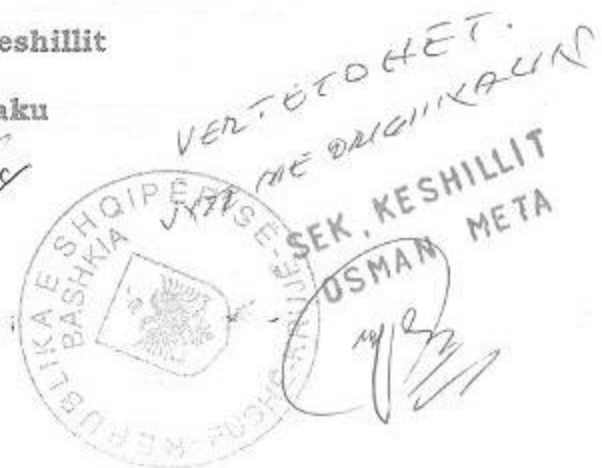 eshillit
aku
VERTETOHET.
ME ORIGJINALIN
SEK. KESHILLIT
OSMAN META
REPUBLIKA E SHQIPERISE
BASHKIA